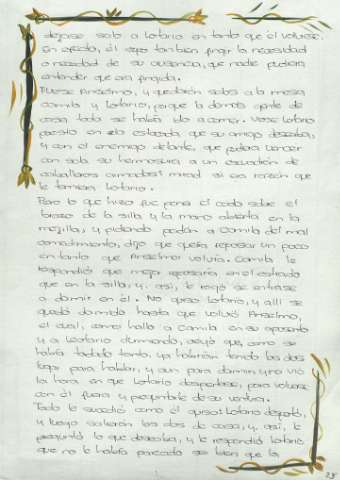 dejase solo a Lotario en tanto que él volviese.
En efecto, él supo tan bien fingir la necesidad
o necedad de su ausencia, que nadie pudiera
entender que era fingida.
Fuese Anselmo, y quedaron solos a la mesa
Camila y Lotario, porque la demás gente de
casa toda se había ido a comer. Viose Lotario
puesto en la estacada que su amigo deseaba,
y con el enemigo delante, que pudiera vencer
con sola su hermosura a un escuadrón de
caballeros armados: mirad si era razón que
le temiera Lotario.
Pero lo que hizo fue poner el codo sobre el
brazo de la silla y la mano abierta en la
mejilla, y pidiendo perdón a Camila del mal
comedimiento, dijo que quería reposar un poco
en tanto que Anselmo volvía. Camila le
respondió que mejor reposaría en el estrado
que en la silla, y, así, le rogó se entrase
a dormir en él. No quiso Lotario, y allí se
quedó dormido hasta que volvió Anselmo,
el cual, como halló a Camila en su aposento
y a Lotario durmiendo, creyó que, como se
había tardado tanto, ya habrían tenido los dos
lugar para hablar, y aun para dormir, y no vio
la hora en que Lotario despertase, para volverse
con él fuera y preguntarle de su ventura.
Todo le sucedió como él quiso: Lotario despertó,
y luego salieron los dos de casa, y, así, le
preguntó lo que deseaba, y le respondió Lotario
que no le había parecido ser bien que la